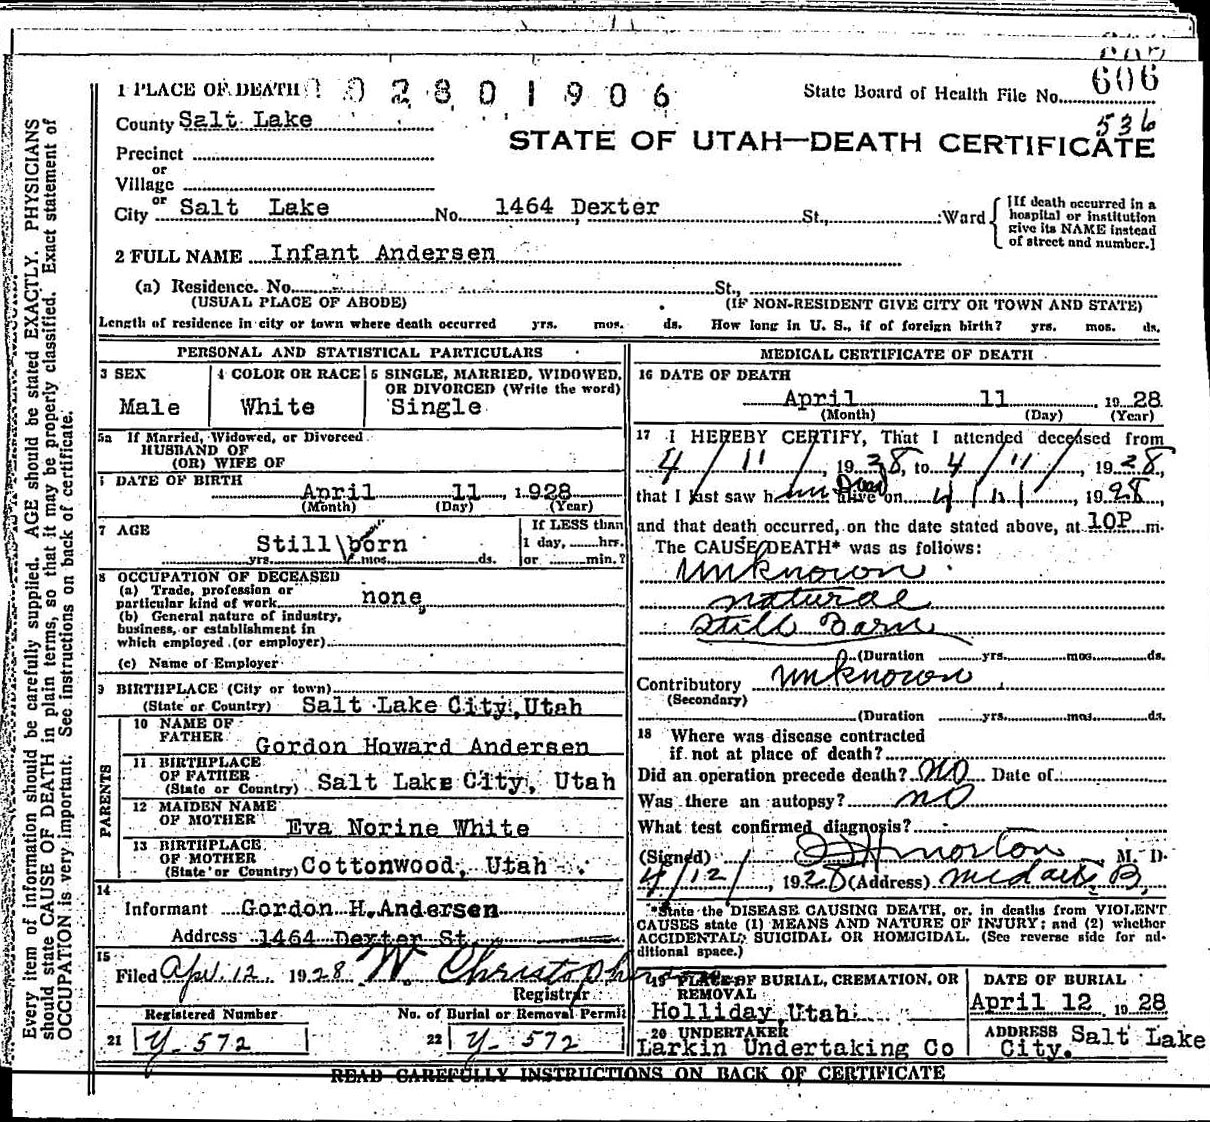 606
1 PLACE OF DEATH 0 0 2 8 0 1 9 0 6 State Board of Health File No.
536
County Salt Lake
STATE OF UTAH—DEATH CERTIFICATE
Precinct
or
Village
or
City Salt Lake No. 1464 Dexter St., Ward
[If death occurred in a
hospital or institution
give its NAME instead
of street and number.]
2 FULL NAME Infant Andersen
(a) Residence. No. St.,
(USUAL PLACE OF ABODE) (IF NON-RESIDENT GIVE CITY OR TOWN AND STATE)
Length of residence in city or town where death occurred yrs. mos. ds. How long in U. S., if of foreign birth? yrs. mos. ds.
PERSONAL AND STATISTICAL PARTICULARS
3 SEX
Male
4 COLOR OR RACE
White
5 SINGLE, MARRIED, WIDOWED,
OR DIVORCED (Write the word)
Single
5a If Married, Widowed, or Divorced
HUSBAND OF
(OR) WIFE OF
DATE OF BIRTH
April 11, 1928
(Month) (Day) (Year)
7 AGE
Still born
yrs. mos. ds.
If LESS than
1 day, hrs.
or min.?
8 OCCUPATION OF DECEASED
(a) Trade, profession or
particular kind of work none,
(b) General nature of industry,
business, or establishment in
which employed (or employer)
(c) Name of Employer
9 BIRTHPLACE (City or town)
(State or Country) Salt Lake City, Utah
PARENTS
10 NAME OF
FATHER
Gordon Howard Andersen
11 BIRTHPLACE
OF FATHER
(State or Country) Salt Lake City, Utah
12 MAIDEN NAME
OF MOTHER
Eva Norine White
13 BIRTHPLACE
OF MOTHER
(State or Country) Cottonwood, Utah
14
Informant Gordon H. Andersen
Address 1464 Dexter St.
15
Filed Apr. 12. 1928 W. Christopherson
Registrar
Registered Number No. of Burial or Removal Permit
21 Y-572 22 Y-572
MEDICAL CERTIFICATE OF DEATH
16 DATE OF DEATH
April 11 1928
(Month) (Day) (Year)
17 I HEREBY CERTIFY, That I attended deceased from
4/11/, 1928, to 4/11/, 1928,
that I last saw him Dead alive on 4/11/, 1928,
and that death occurred, on the date stated above, at 10P m.
The CAUSE/DEATH* was as follows:
Unknown
natural
Still Born
(Duration yrs. mos. ds.
Contributory Unknown
(Secondary)
(Duration yrs. mos. ds.
18 Where was disease contracted
if not at place of death?
Did an operation precede death? NO Date of
Was there an autopsy? no
What test confirmed diagnosis?
(Signed) Morton M. D.
4/12/, 1928 (Address)
*State the DISEASE CAUSING DEATH, or, in deaths from VIOLENT
CAUSES state (1) MEANS AND NATURE OF INJURY; and (2) whether
ACCIDENTAL, SUICIDAL OR HOMICIDAL. (See reverse side for ad-
ditional space.)
19 PLACE OF BURIAL, CREMATION, OR
REMOVAL
Holliday, Utah
DATE OF BURIAL
April 12 1928
20 UNDERTAKER
Larkin Undertaking Co
ADDRESS Salt Lake
City.
READ CAREFULLY INSTRUCTIONS ON BACK OF CERTIFICATE
Every item of information should be carefully supplied. AGE should be stated EXACTLY. PHYSICIANS
should state CAUSE OF DEATH in plain terms, so that it may be properly classified. Exact statement of
OCCUPATION is very important. See instructions on back of certificate.